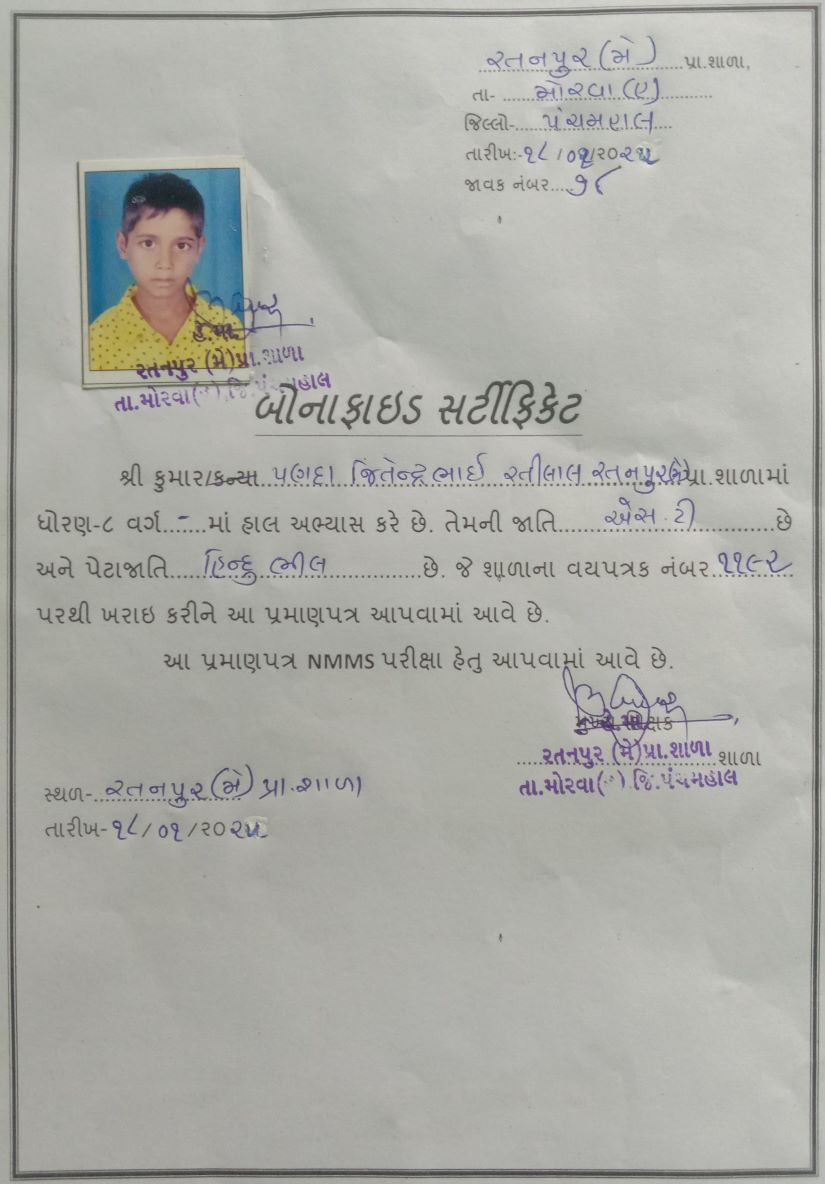 રતનપુર (મે) પ્રા.શાળા,
તા- મોરવા (હ)
જિલ્લો- પંચમહાલ
તારીખ:-૧૮/૦૧/૨૦૨૫
જાવક નંબર....૭૮
રતનપુર (મે)પ્રા.શાળા
તા.મોરવા( ) જિ.પંચમહાલ
બોનાફાઇડ સર્ટીફિકેટ
શ્રી કુમાર/કન્યા પગી જિતેન્દ્રભાઈ રતીલાલ રતનપુર(મે)પ્રા.શાળામાં
ધોરણ-૮ વર્ગ..-...માં હાલ અભ્યાસ કરે છે. તેમની જાતિ એસ.ટી છે
અને પેટાજાતિ હિન્દુ ભીલ છે. જે શાળાના વયપત્રક નંબર ૧૧૯૨
પરથી ખરાઇ કરીને આ પ્રમાણપત્ર આપવામાં આવે છે.
આ પ્રમાણપત્ર NMMS પરીક્ષા હેતુ આપવામાં આવે છે.
રતનપુર (મે)પ્રા.શાળા શાળા
તા.મોરવા( ) જિ.પંચમહાલ
સ્થળ- રતનપુર(મે) પ્રા.શાળા
તારીખ-૧૮/૦૧/૨૦૨૫